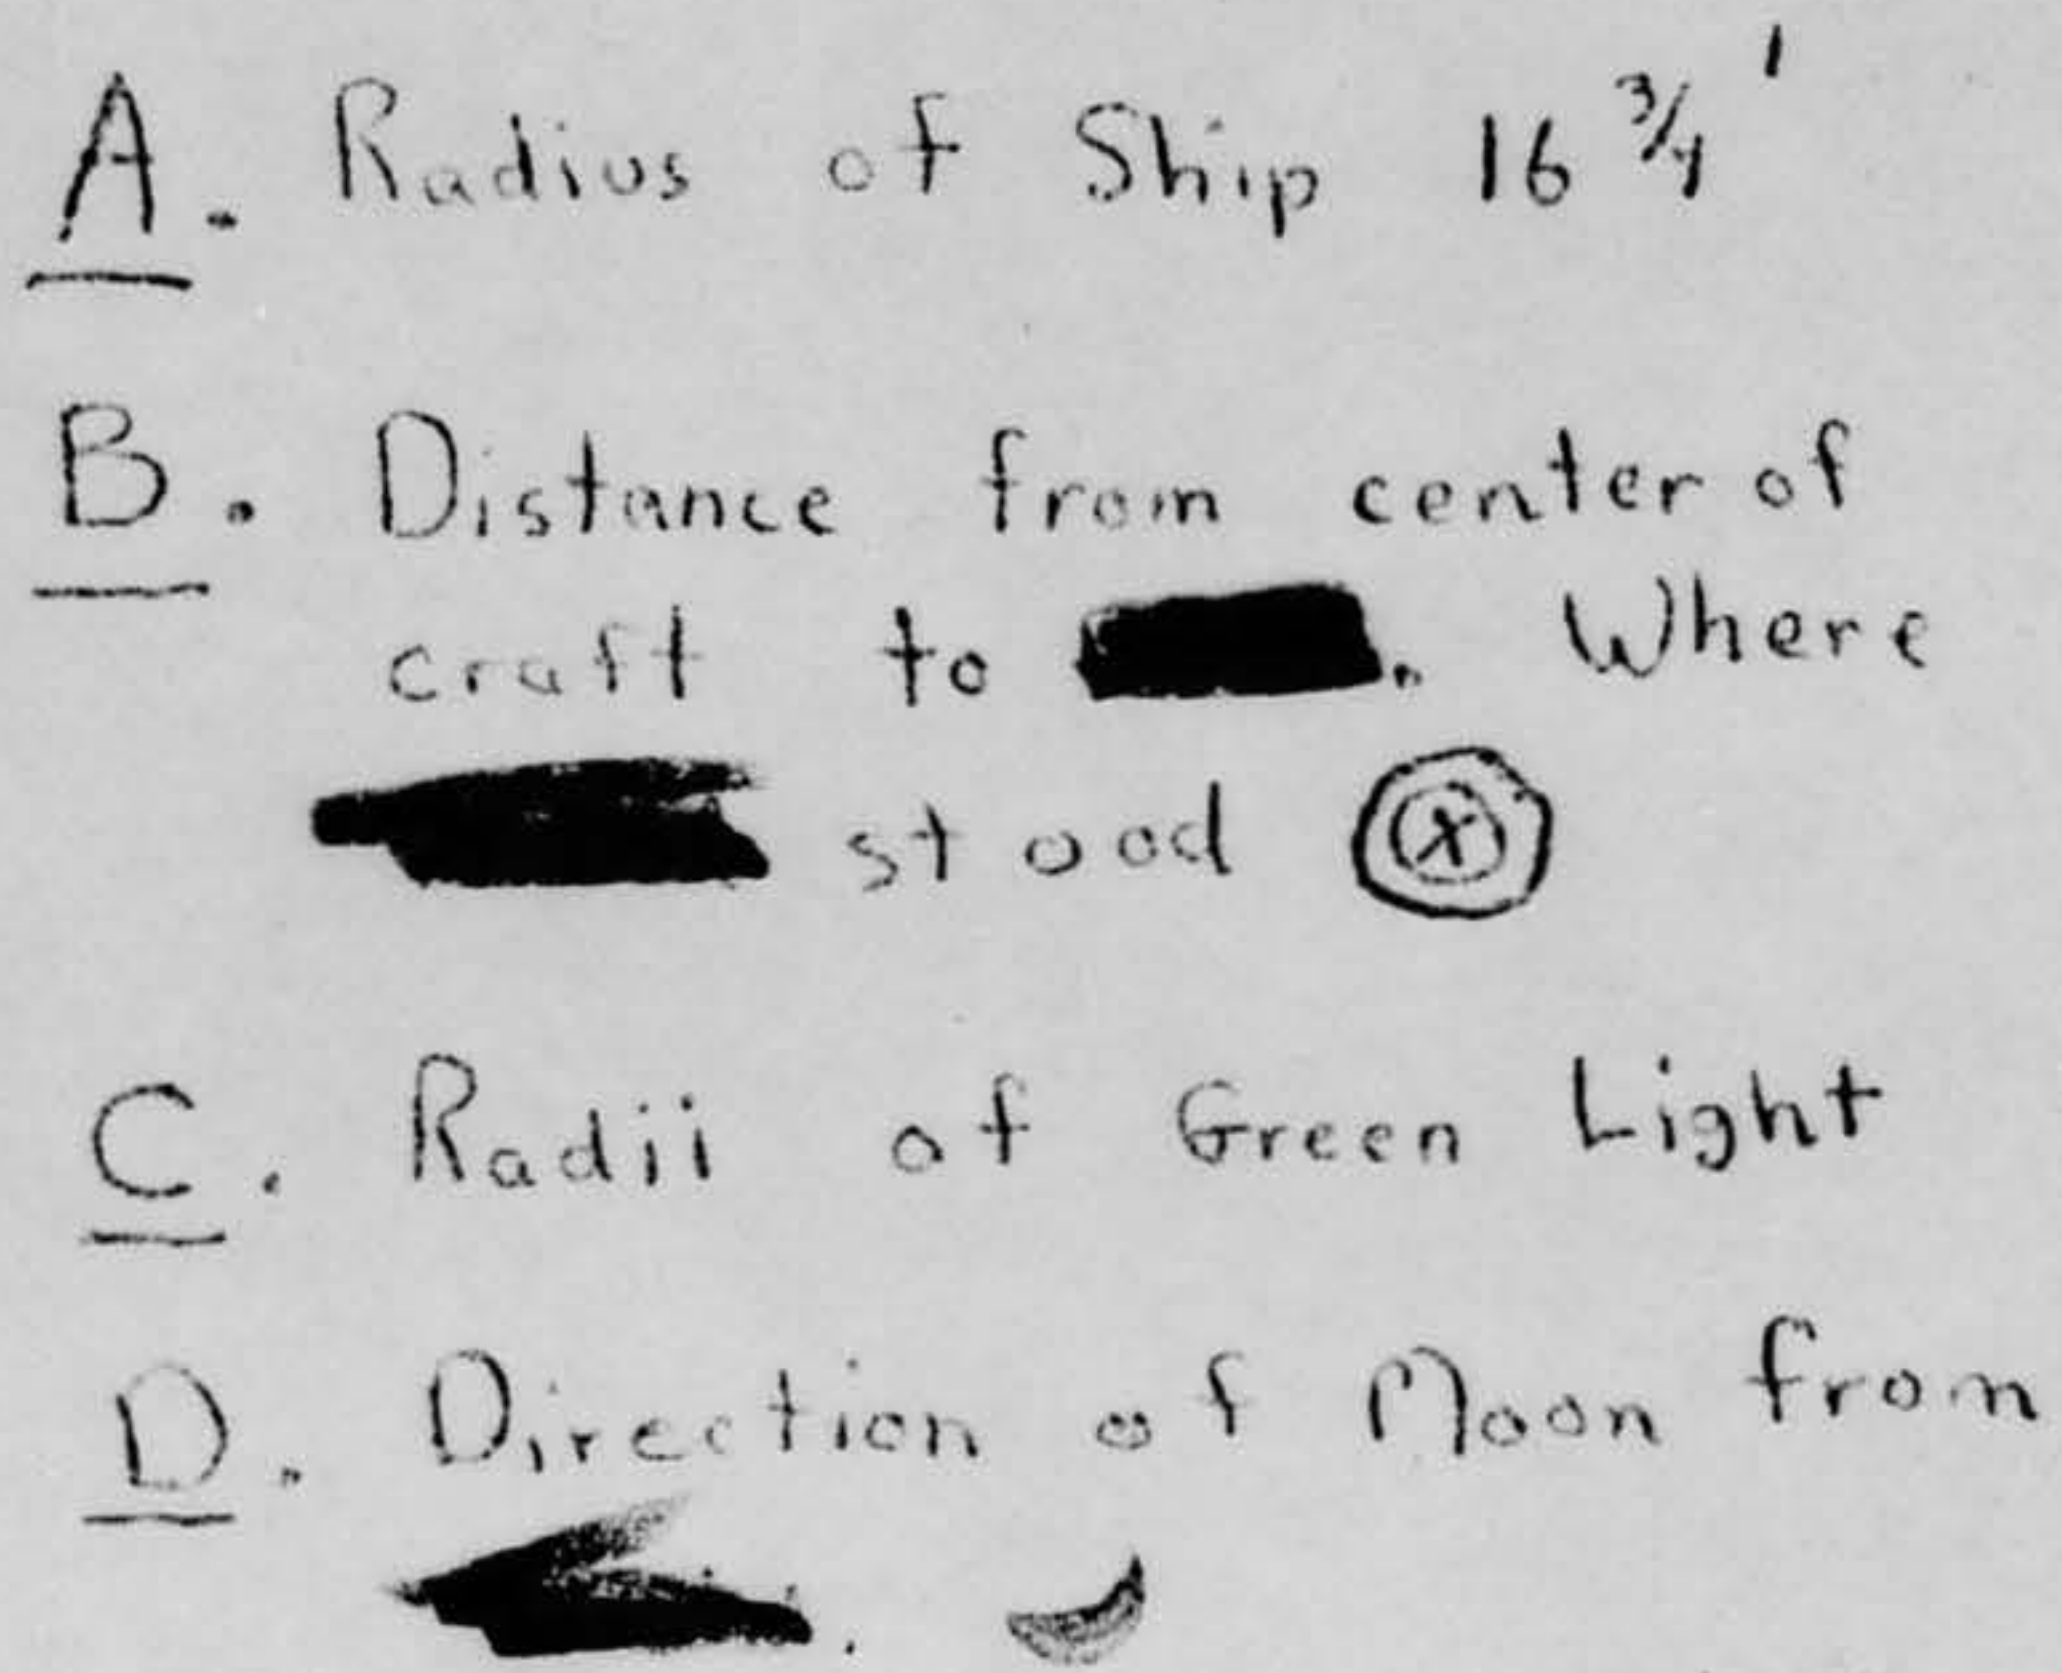 A. Radius of Ship 16 3/4'
B. Distance from center of
craft to . Where
stood X
C. Radii of Green Light
D. Direction of Moon from
.